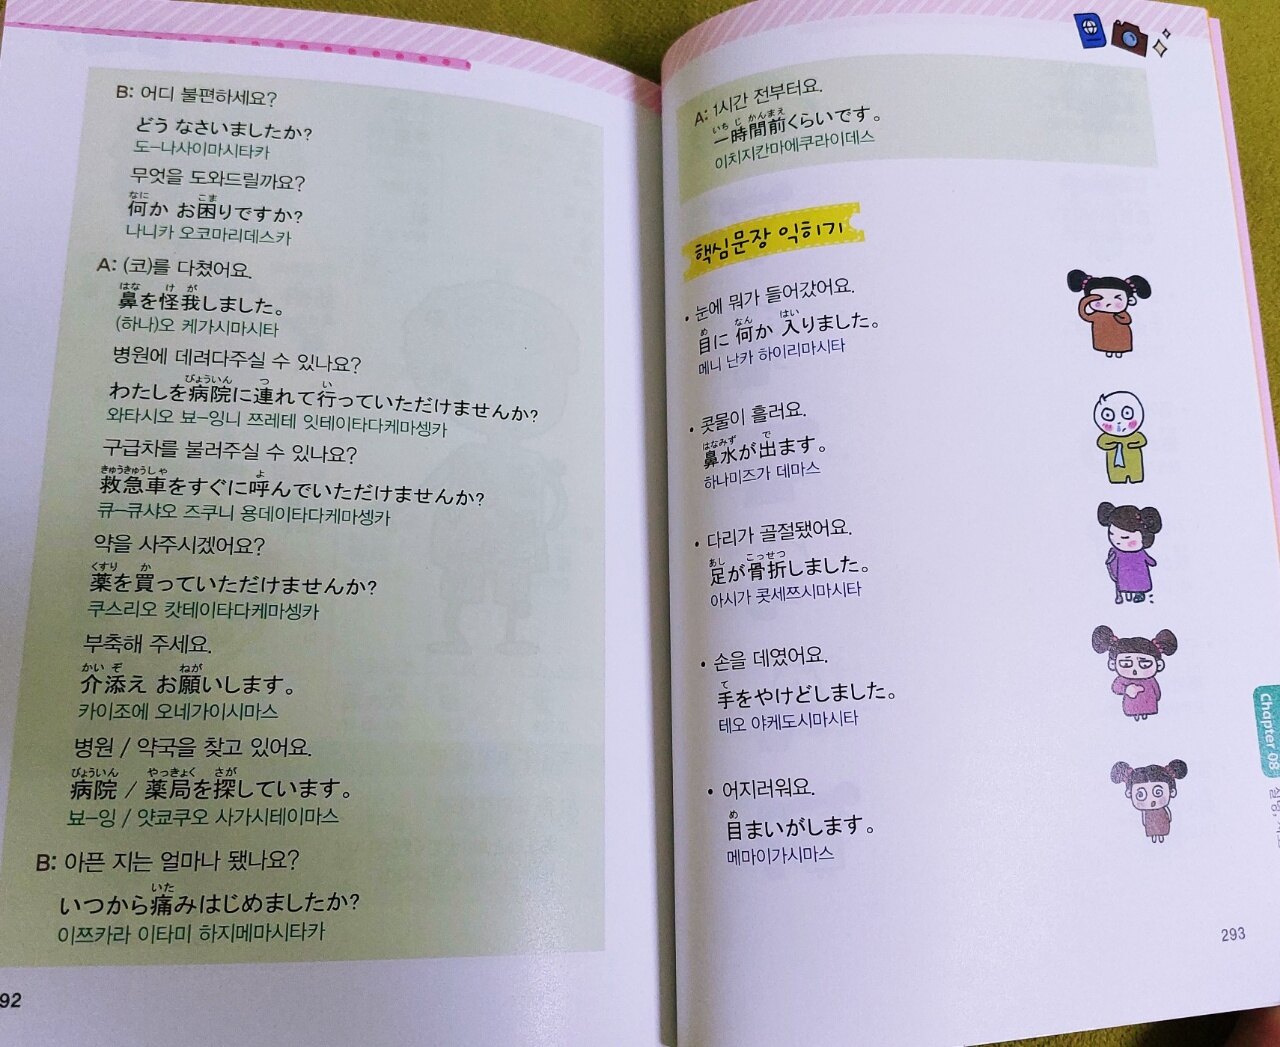 B: 어디 불편하세요?
どう なさいましたか?
도-나사이마시타카
무엇을 도와드릴까요?
なに こま
何か お困りですか?
나니카 오코마리데스카
A: (코)를 다쳤어요.
はな け が
鼻を怪我しました。
(하나)오 케가시마시타
병원에 데려다주실 수 있나요?
びょういん つ い
わたしを病院に連れて行っていただけませんか?
와타시오 뵤-잉니 쯔레테 잇테이타다케마셍카
구급차를 불러주실 수 있나요?
きゅうきゅうしゃ よ
救急車をすぐに呼んでいただけませんか?
큐-큐샤오 즈쿠니 용데이타다케마셍카
약을 사주시겠어요?
くすり か
薬を買っていただけませんか?
쿠스리오 캇테이타다케마셍카
부축해 주세요.
かい ぞ ねが
介添え お願いします。
카이조에 오네가이시마스
병원 / 약국을 찾고 있어요.
びょういん やっきょく さが
病院 / 薬局を探しています。
뵤-잉 / 얏쿄쿠오 사가시테이마스
B: 아픈 지는 얼마나 됐나요?
いた
いつから痛みはじめましたか?
이쯔카라 이타미 하지메마시타카
92
A: 1시간 전부터요.
いち じ かんまえ
一時間前くらいです。
이치지칸마에쿠라이데스
핵심문장 익히기
• 눈에 뭐가 들어갔어요.
め なん はい
目に 何か 入りました。
메니 난카 하이리마시타
• 콧물이 흘러요.
はなみず で
鼻水が出ます。
하나미즈가 데마스
• 다리가 골절됐어요.
あし こっせつ
足が骨折しました。
아시가 콧세쯔시마시타
• 손을 데였어요.
て
手をやけどしました。
테오 야케도시마시타
• 어지러워요.
め
目まいがします。
메마이가시마스
Chapter 08
293